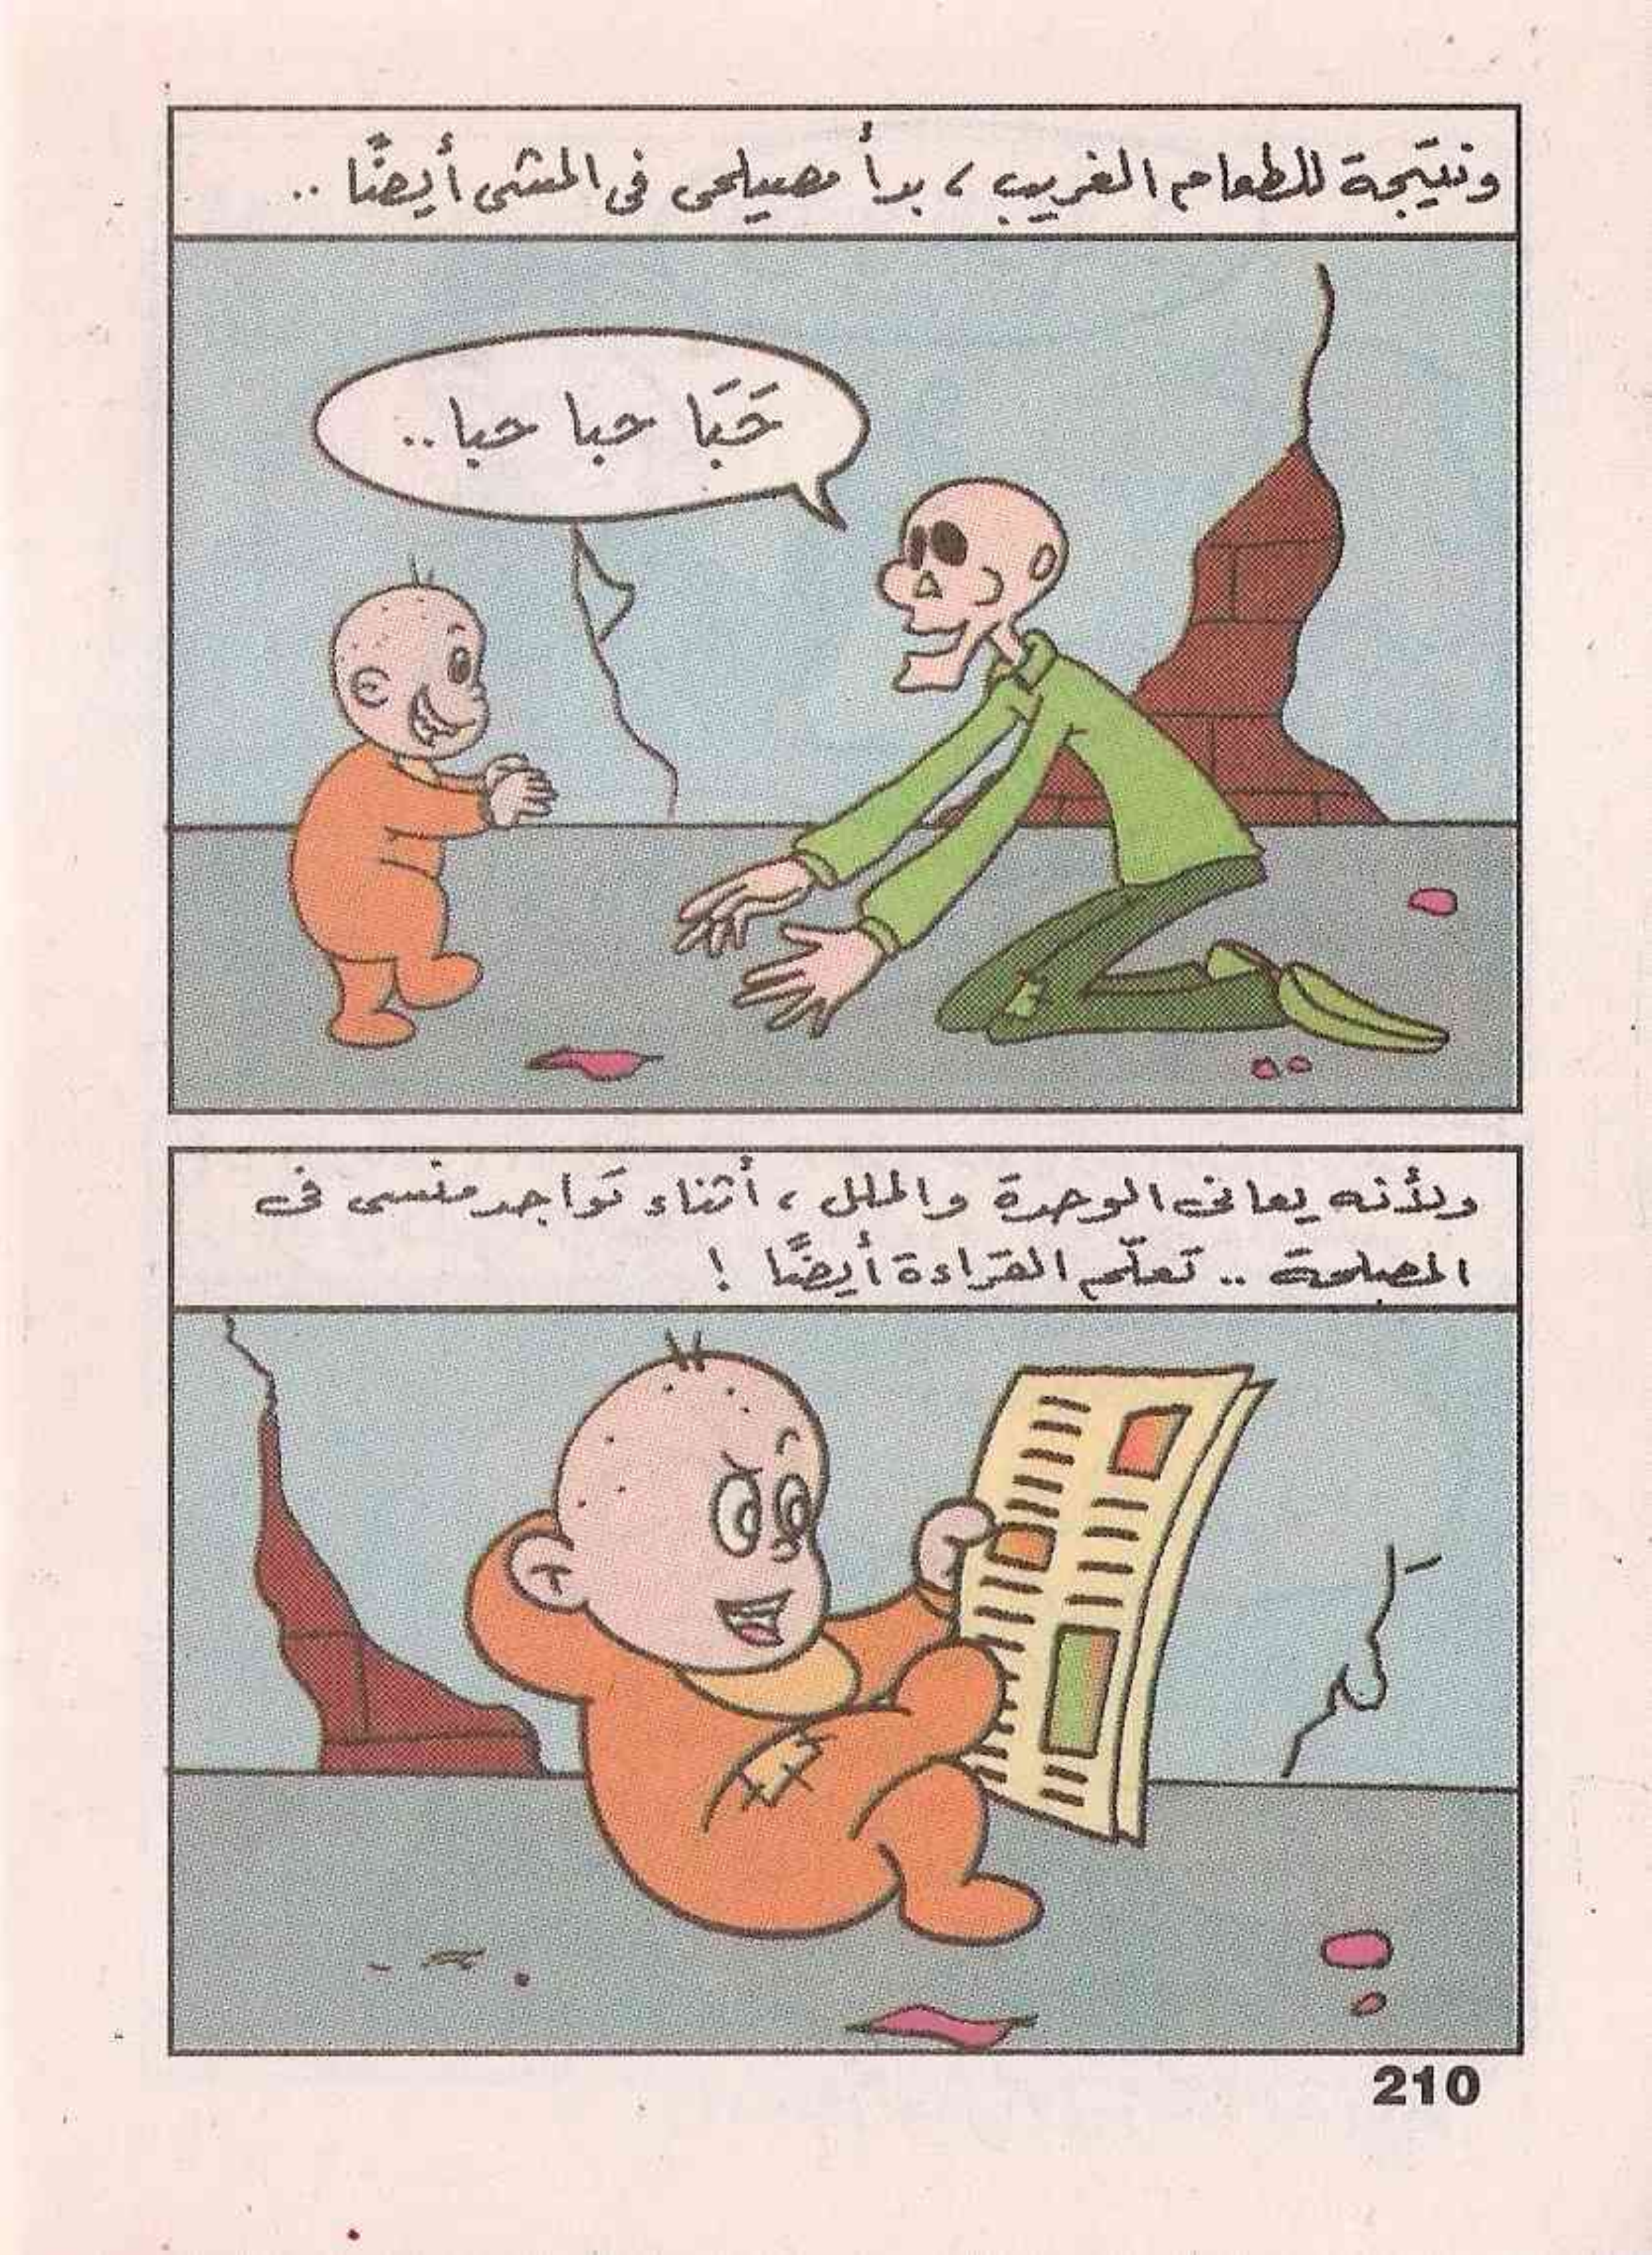 ونتيجة للطعام الغريب ، بدأ مصيلحى فى المشى أيضًا ..
حَبَا حبا حبا ..
ولأنه يعانى الوحدة والملل ، أثناء تواجد منسى فى
المصلحة .. تعلّم القراءة أيضًا !
210